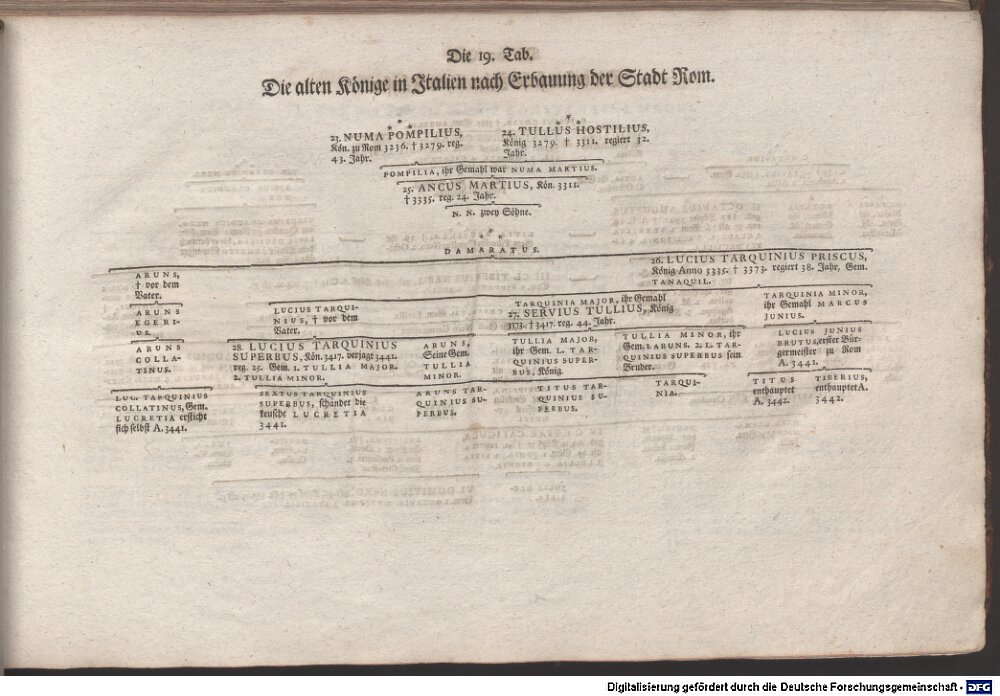 Die 19. Tab.
Die alten Könige in Italien nach Erbauung der Stadt Rom.
23. NUMA POMPILIUS,
Kön. zu Rom 3236. † 3279. reg.
43. Jahr.
24. TULLUS HOSTILIUS,
König 3279. † 3311. regiert 32.
Jahr.
POMPILIA, ihr Gemahl war NUMA MARTIUS.
25. ANCUS MARTIUS, Kön. 3311.
† 3335. reg. 24. Jahr.
N. N. zwey Söhne.
DAMARATUS.
ARUNS,
† vor dem
Vater.
26. LUCIUS TARQUINIUS PRISCUS,
König Anno 3335. † 3373. regiert 38. Jahr, Gem.
TANAQUIL.
ARUNS
EGERI-
US.
LUCIUS TARQUI-
NIUS, † vor dem
Vater.
TARQUINIA MAJOR, ihr Gemahl
27. SERVIUS TULLIUS, König
3373. † 3417. reg. 44. Jahr.
TARQUINIA MINOR,
ihr Gemahl MARCUS
JUNIUS.
ARUNS
COLLA-
TINUS.
28. LUCIUS TARQUINIUS
SUPERBUS, Kön. 3417. verjagt 3441.
reg. 25. Gem. 1. TULLIA MAJOR.
2. TULLIA MINOR.
ARUNS,
Seine Gem.
TULLIA
MINOR.
TULLIA MAJOR,
ihr Gem. L. TAR-
QUINIUS SUPER-
BUS, König.
TULLIA MINOR, ihr
Gem. 1. ARUNS. 2. L. TAR-
QUINIUS SUPERBUS sein
Bruder.
LUCIUS JUNIUS
BRUTUS, erster Bür-
germeister zu Rom
A. 3441.
LUC. TARQUINIUS
COLLATINUS, Gem.
LUCRETIA ersticht
sich selbst A. 3441.
SEXTUS TARQUINIUS
SUPERBUS, schändet die
keusche LUCRETIA
3441.
ARUNS TAR-
QUINIUS SU-
PERBUS.
TITUS TAR-
QUINIUS SU-
PERBUS.
TARQUI-
NIA.
TITUS
enthauptet
A. 3442.
TIBERIUS,
enthauptet A.
3442.
Digitalisierung gefördert durch die Deutsche Forschungsgemeinschaft - DFG